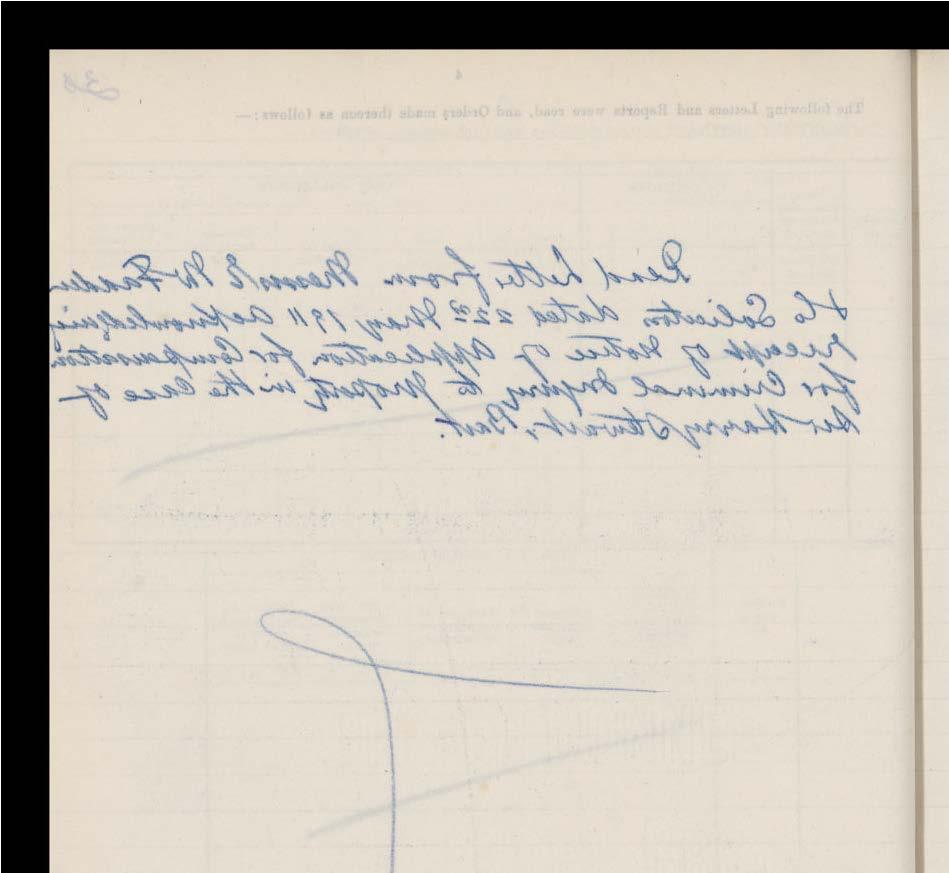 30
4
The following Letters and Reports were read, and Orders made thereon as follows:—
Read Letter from Messrs E. McFadden
& Co Solicitors dated 22nd May 1911 acknowledging
receipt of Notice of Application for Compensation
for Criminal Injury to Property in the Case of
Sir Harry Stewart, Bart.